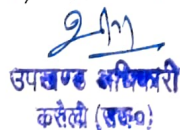 उपखण्ड अधिकारी
कसेली (राज०)